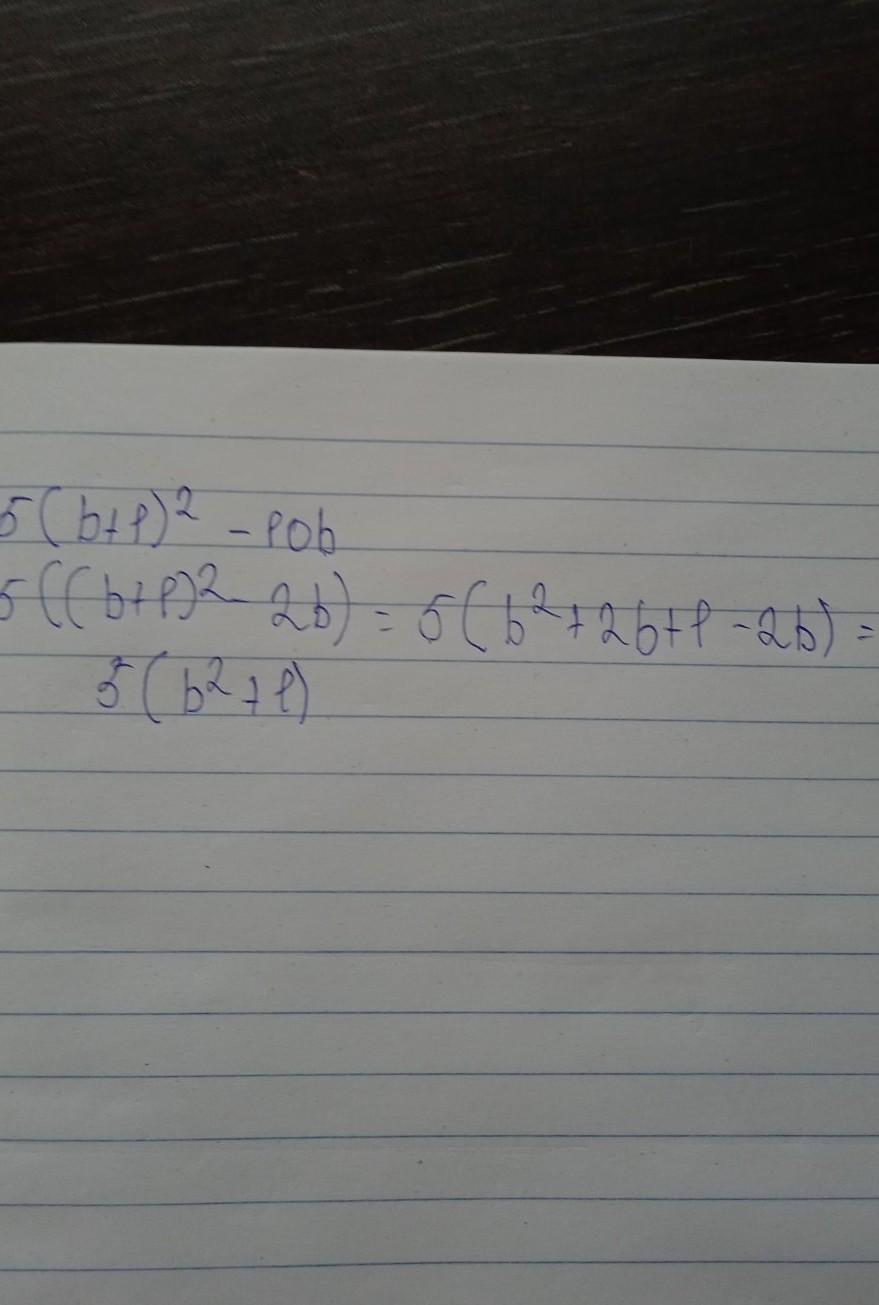 5(b+1)² - 10b
5((b+1)² - 2b) = 5(b² + 2b + 1 - 2b) =
5(b² + 1)